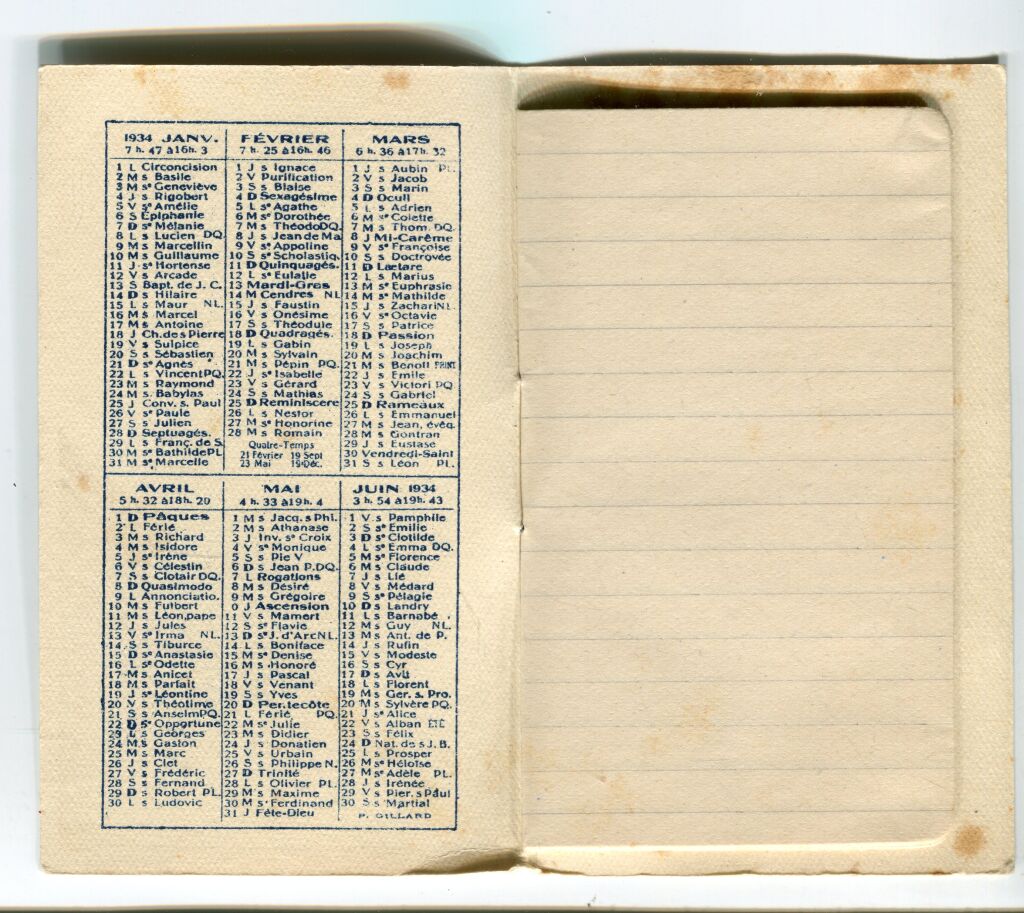 1934 JANV.
7 h. 47 à 16h. 3
1 L Circoncision
2 M s Basile
3 M sᵉ Geneviève
4 J s Rigobert
5 V sᵉ Amélie
6 S Épiphanie
7 D sᵉ Mélanie
8 L s Lucien DQ
9 M s Marcellin
10 M s Guillaume
11 J sᵉ Hortense
12 V s Arcade
13 S Bapt. de J. C.
14 D s Hilaire
15 L s Maur NL.
16 M s Marcel
17 M s Antoine
18 J Ch. de s Pierre
19 V s Sulpice
20 S s Sébastien
21 D sᵉ Agnès
22 L s Vincent PQ.
23 M s Raymond
24 M s Babylas
25 J Conv. s. Paul
26 V sᵉ Paule
27 S s Julien
28 D Septuagés.
29 L s Franç. de S.
30 M sᵉ Bathilde PL
31 M sᵉ Marcelle
FÉVRIER
7 h. 25 à 16h. 46
1 J s Ignace
2 V Purification
3 S s Blaise
4 D Sexagésime
5 L sᵉ Agathe
6 M sᵉ Dorothée
7 M s Théodo DQ.
8 J s Jean de Ma
9 V sᵉ Appoline
10 S sᵉ Scholastiq.
11 D Quinquagés.
12 L sᵉ Eulalie
13 Mardi-Gras
14 M Cendres NL
15 J s Faustin
16 V s Onésime
17 S s Théodule
18 D Quadragés.
19 L s Gabin
20 M s Sylvain
21 M s Pépin PQ.
22 J sᵉ Isabelle
23 V s Gérard
24 S s Mathias
25 D Reminiscere
26 L s Nestor
27 M sᵉ Honorine
28 M s Romain
Quatre-Temps
21 Février 19 Sept
23 Mai 19 Déc.
MARS
6 h. 36 à 17h. 32
1 J s Aubin PL.
2 V s Jacob
3 S s Marin
4 D Oculi
5 L s Adrien
6 M sᵉ Colette
7 M s Thom. DQ.
8 J Mi-Carême
9 V sᵉ Françoise
10 S s Doctrovée
11 D Lætare
12 L s Marius
13 M sᵉ Euphrasie
14 M sᵉ Mathilde
15 J s Zachari NL.
16 V sᵉ Octavie
17 S s Patrice
18 D Passion
19 L s Joseph
20 M s Joachim
21 M s Benoit PRINT
22 J s Emile
23 V s Victori PQ
24 S s Gabriel
25 D Rameaux
26 L s Emmanuel
27 M s Jean, évêq.
28 M s Gontran
29 J s Eustase
30 Vendredi-Saint
31 S s Léon PL.
AVRIL
5 h. 32 à 18h. 20
1 D Pâques
2 L Férié
3 M s Richard
4 M s Isidore
5 J sᵉ Irène
6 V s Célestin
7 S s Clotair DQ.
8 D Quasimodo
9 L Annonciatio.
10 M s Fulbert
11 M s Léon, pape
12 J s Jules
13 V sᵉ Irma NL.
14 S s Tiburce
15 D sᵉ Anastasie
16 L sᵉ Odette
17 M s Anicet
18 M s Parfait
19 J sᵉ Léontine
20 V s Théotime
21 S s Anselm PQ.
22 D sᵉ Opportune
23 L s Georges
24 M s Gaston
25 M s Marc
26 J s Clet
27 V s Frédéric
28 S s Fernand
29 D s Robert PL.
30 L s Ludovic
MAI
4 h. 33 à 19h. 4
1 M s Jacq. s Phi.
2 M s Athanase
3 J Inv. sᵉ Croix
4 V sᵉ Monique
5 S s Pie V
6 D s Jean P. DQ.
7 L Rogations
8 M s Désiré
9 M s Grégoire
0 J Ascension
11 V s Mamert
12 S sᵉ Flavie
13 D sᵉ J. d'Arc NL.
14 L s Boniface
15 M sᵉ Denise
16 M s Honoré
17 J s Pascal
18 V s Venant
19 S s Yves
20 D Pentecôte
21 L Férié PQ.
22 M sᵉ Julie
23 M s Didier
24 J s Donatien
25 V s Urbain
26 S s Philippe N.
27 D Trinité
28 L s Olivier PL.
29 M s Maxime
30 M s Ferdinand
31 J Fête-Dieu
JUIN 1934
3 h. 54 à 19h. 43
1 V s Pamphile
2 S sᵉ Emilie
3 D sᵉ Clotilde
4 L sᵉ Emma DQ.
5 M sᵉ Florence
6 M s Claude
7 J s Lié
8 V s Médard
9 S sᵉ Pélagie
10 D s Landry
11 L s Barnabé
12 M s Guy NL.
13 M s Ant. de P.
14 J s Rufin
15 V s Modeste
16 S s Cyr
17 D s Avit
18 L s Florent
19 M s Ger. s. Pro.
20 M s Sylvère PQ.
21 J sᵉ Alice
22 V s Alban ÉTÉ
23 S s Félix
24 D Nat. de s J. B.
25 L s Prosper
26 M sᵉ Héloïse
27 M sᵉ Adèle PL.
28 J s Irénée
29 V s Pier. s Paul
30 S s Martial
P. GILLARD